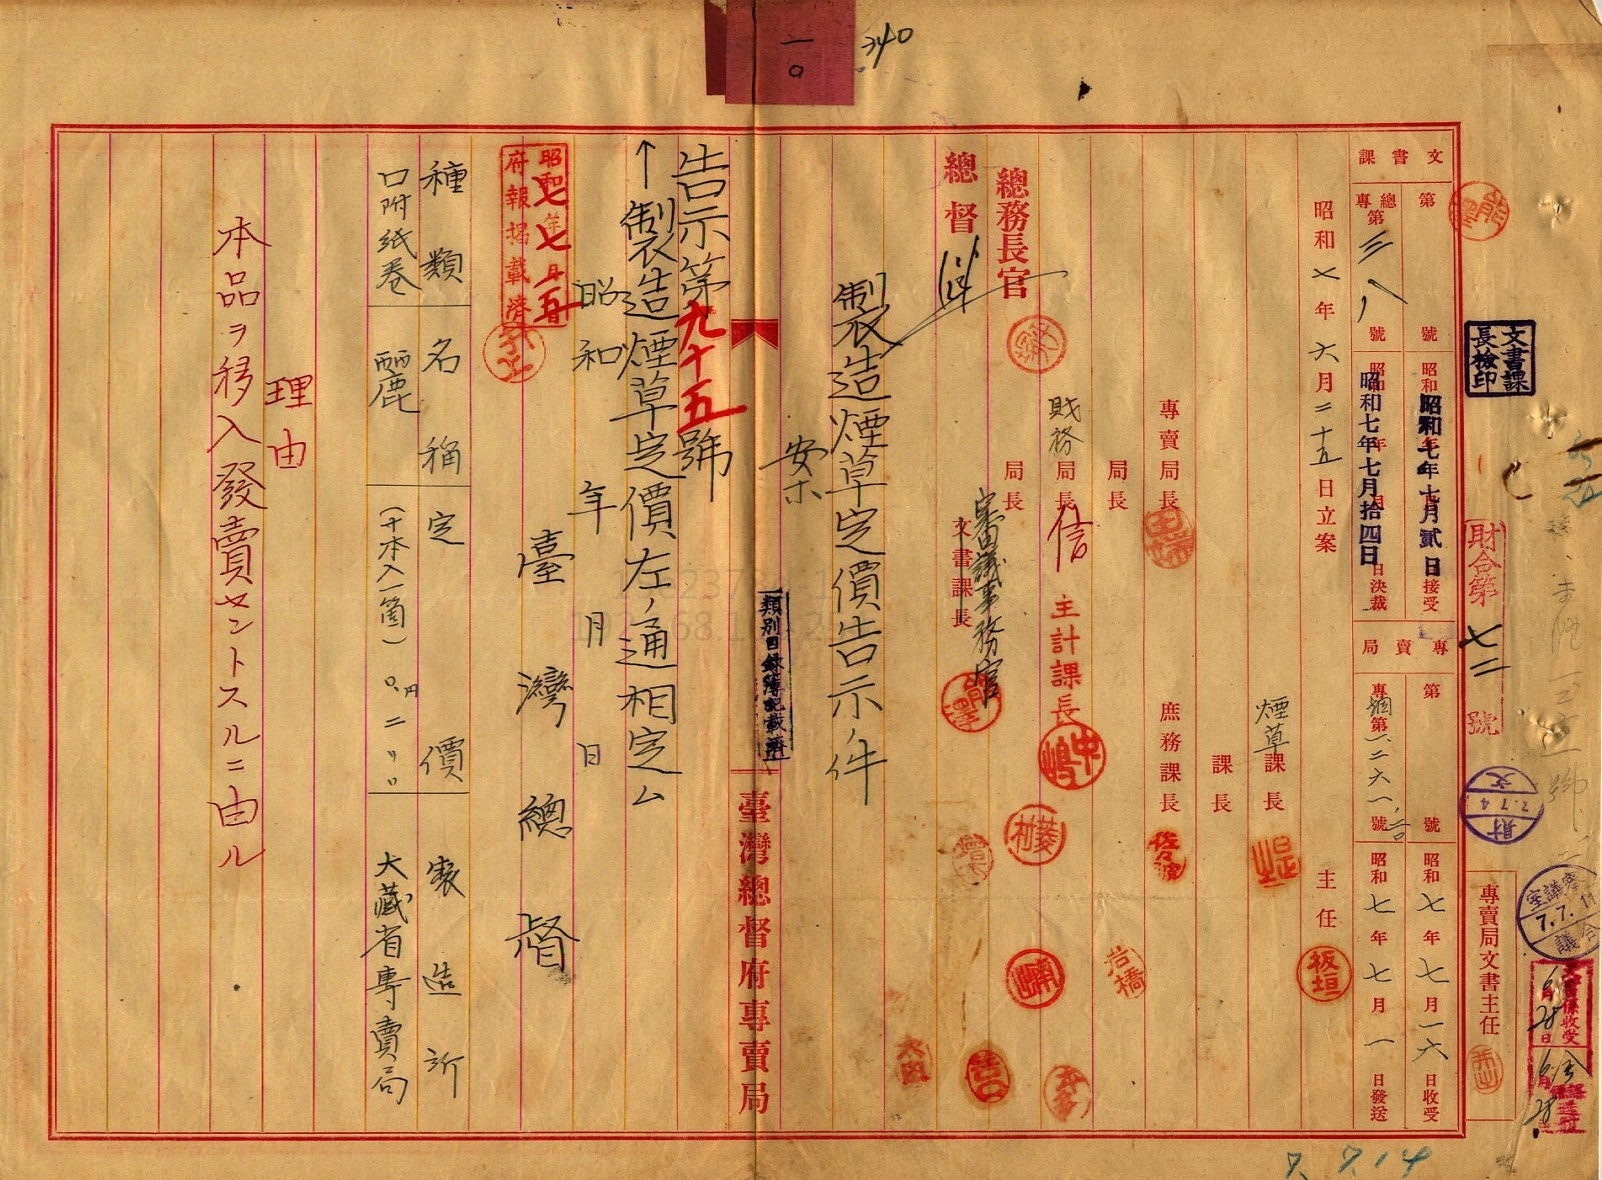 一〇
340
文書課
第 號 昭和七年七月貳日接受
總專第三八一號 昭和七年七月拾四日決裁
專賣局
第 號 昭和七年七月一六日收受
專烟第一二六一號 昭和七年七月一日發送
昭和七年六月二十五日立案
主任 板垣
煙草課長
課長
專賣局長
庶務課長
局長
岩橋
財務局長 信
主計課長
總務長官
局長
審議室事務官
文書課長
總督
製造煙草定價告示ノ件
案
類別目録簿記載濟
臺灣總督府專賣局
告示第九十五號
製造煙草定價左ノ通相定ム
昭和 年 月 日
昭和七年七月二五日
府報掲載濟
臺灣總督
種類 名稱 定價 製造所
口附紙巻 麗 (十本入一箇) 大藏省專賣局
理由
本品ヲ移入發賣セントスルニ由ル
文書課長檢印
財合第七二號
財 7.7.4 文
審議室 7.7.11 合議
專賣局文書主任
6月28日
7.7.14